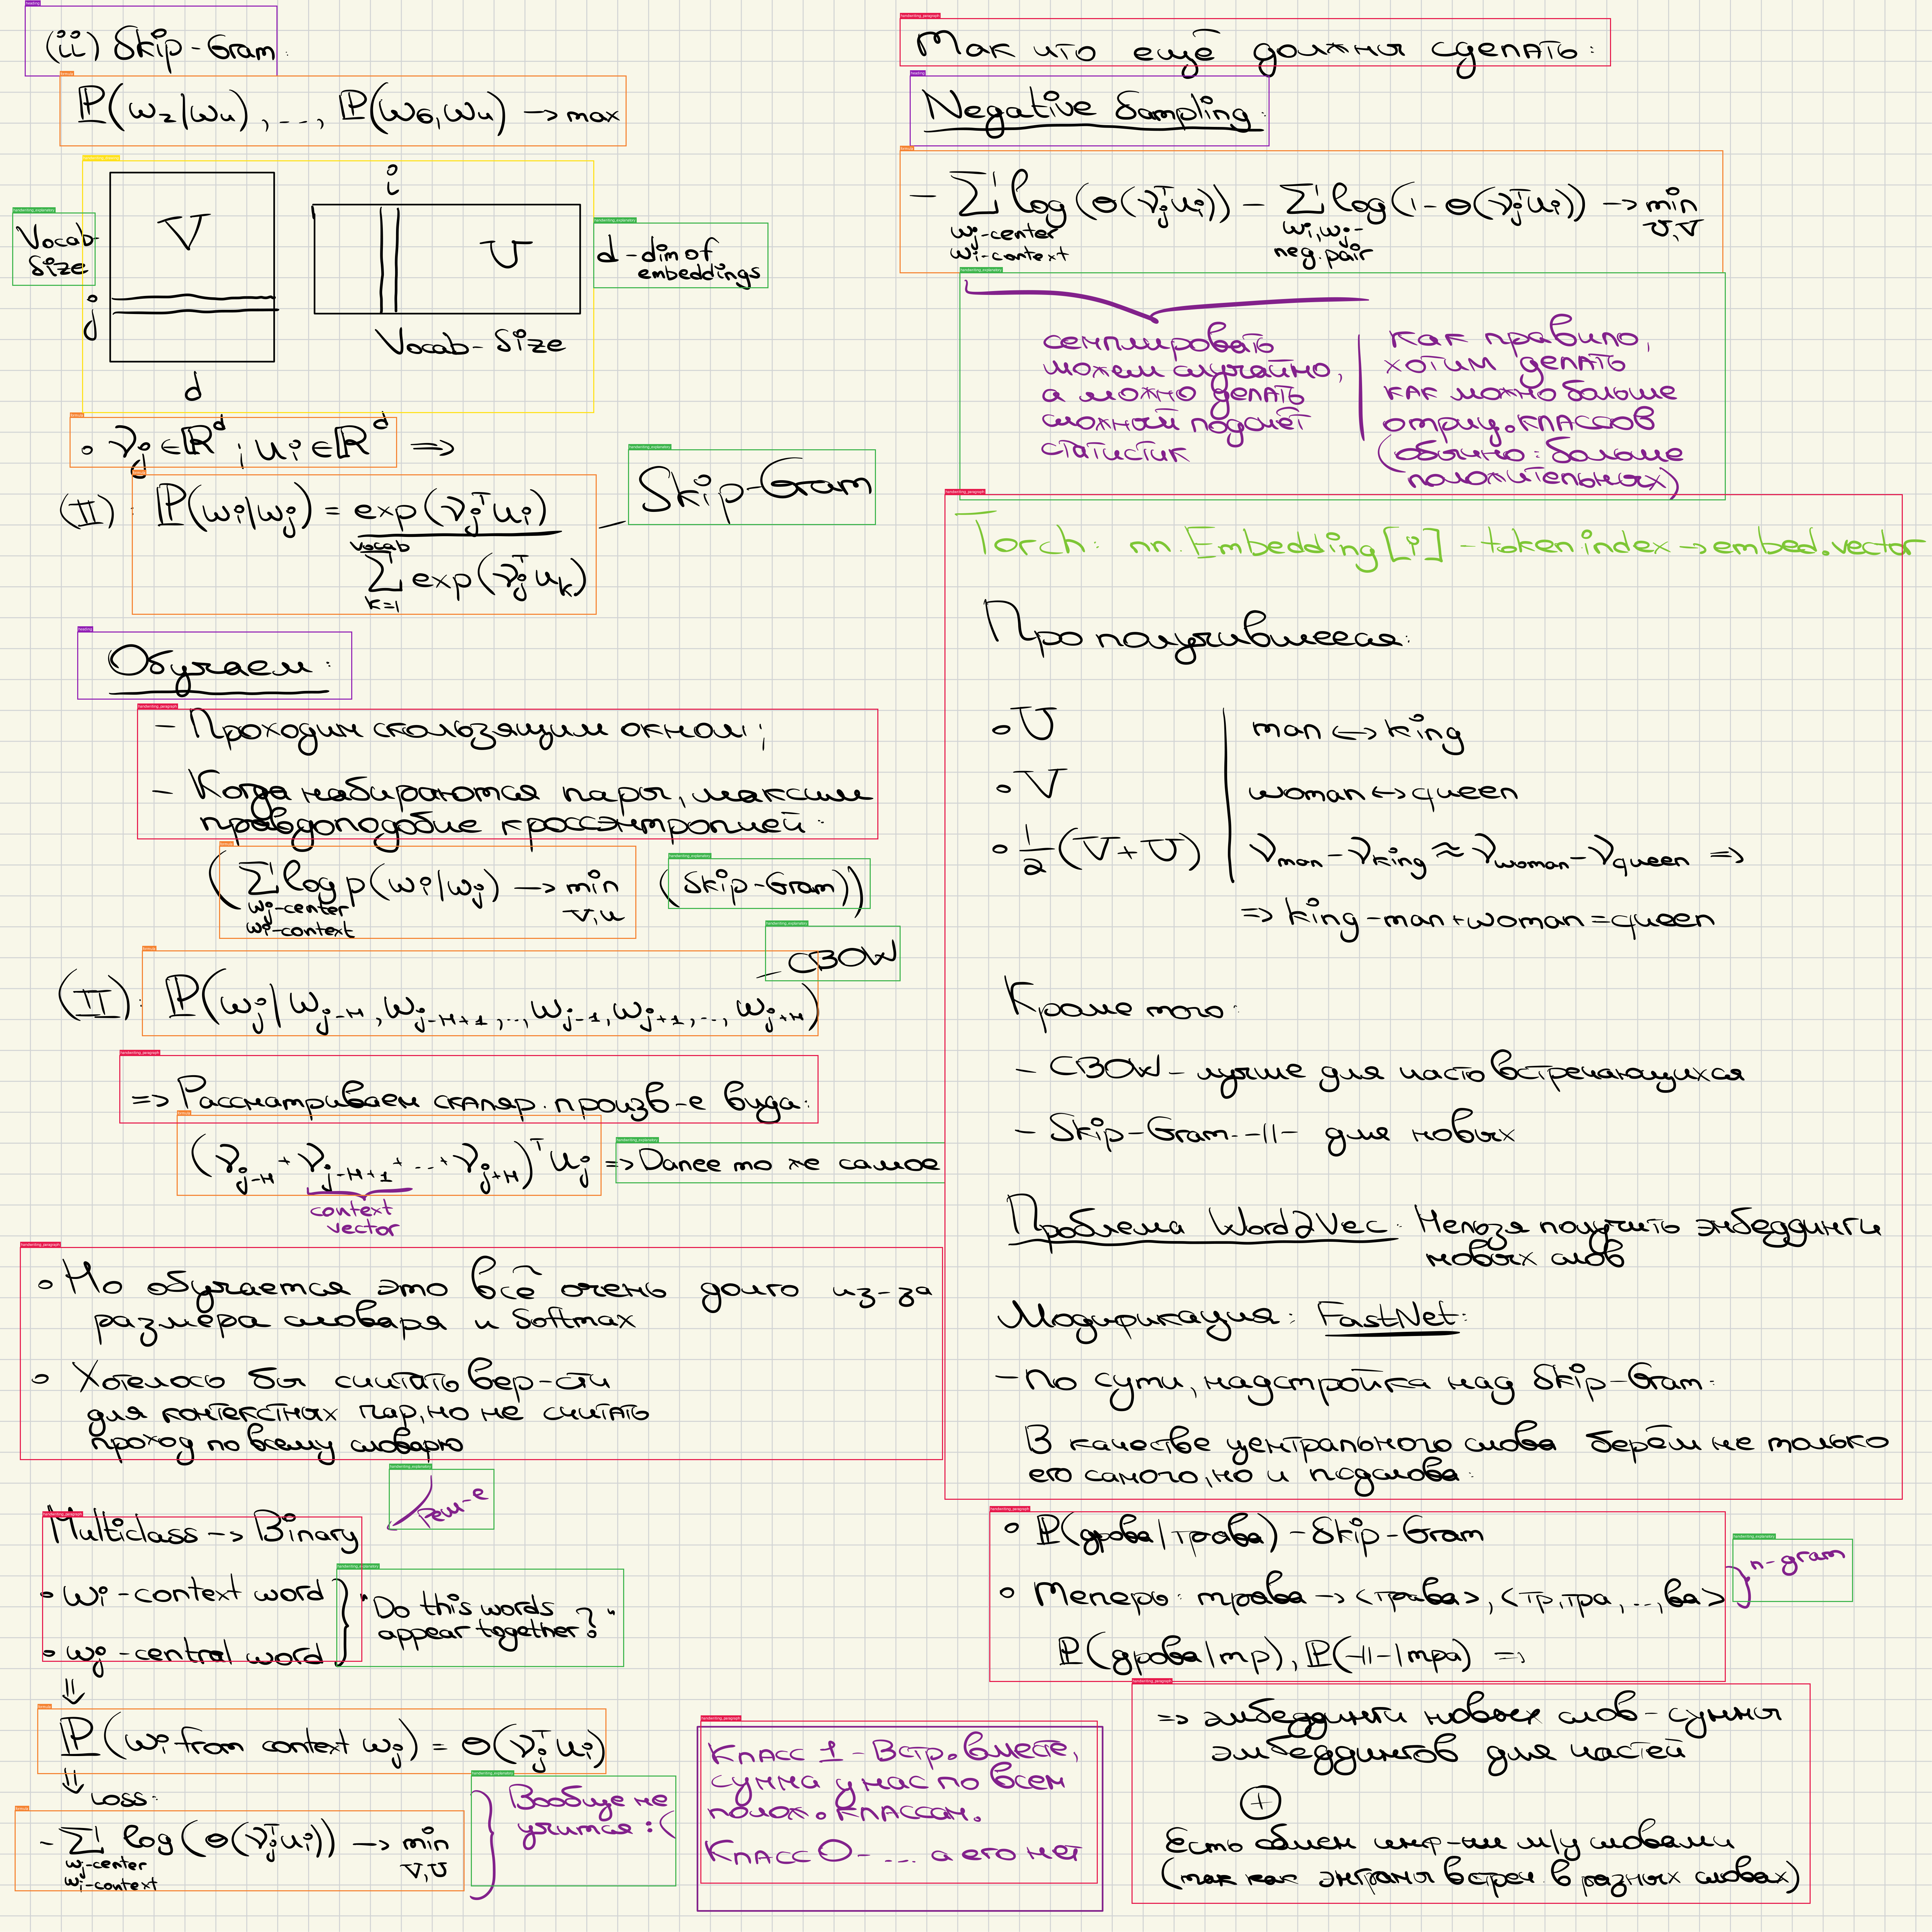 (ii) Skip-Gram:
P(w₂|w₄), ..., P(w₆,w₄) → max
Vocab-
Size
V
j
d
i
U
Vocab-Size
d-dim of
embeddings
∘ ν_j ∈ ℝ^d ; u_i ∈ ℝ^d ⇒
(II): P(w_i|w_j) = exp(ν_j^T u_i) / Σ_{k=1}^{vocab} exp(ν_j^T u_k) – Skip-Gram
Обучаем:
– Проходим скользящим окном;
– Когда набираются пары, максим
правдоподобие кроссэнтропией:
(Σ log p(w_i|w_j) → min (Skip-Gram))
w_j-center V,U
w_i-context
(II): P(w_j | w_{j-н}, w_{j-н+1}, .., w_{j-1}, w_{j+1}, .., w_{j+н}) – CBOW
⇒ Рассматриваем скаляр. произв-е вида:
(ν_{j-н} + ν_{j-н+1} + ... + ν_{j+н})^T u_j ⇒ Далее то же самое
context
vector
∘ Но обучается это всё очень долго из-за
размера словаря и Softmax
∘ Хотелось бы считать вер-сти
для контекстных пар, но не считать
проход по всему словарю
реш-е
Multiclass → Binary
∘ w_i - context word
∘ w_j - central word
"Do this words
appear together?"
⇓
P(w_i from context w_j) = σ(ν_j^T u_i)
⇓ Loss:
- Σ log(σ(ν_j^T u_i)) → min
w_j-center V,U
w_i-context
Вообще не
учится :(
Класс 1 - Встр. вместе,
сумма у нас по всем
полож. классам.
Класс 0 - .... а его нет
Так что ещё должны сделать:
Negative Sampling:
- Σ log(σ(ν_j^T u_i)) - Σ log(1-σ(ν_j^T u_i)) → min
w_j-center w_i,w_j- U,V
w_i-context neg.pair
семплировать
можем случайно,
а можно делать
сложный подсчёт
статистик
Как правило,
хотим делать
как можно больше
отриц. классов
(обычно: больше
положительных)
Torch: nn.Embedding[i] - token index → embed.vector
Про получившееся:
∘ U
∘ V
∘ 1/2 (V+U)
man ↔ king
woman ↔ queen
ν_man - ν_king ≈ ν_woman - ν_queen ⇒
⇒ king - man + woman = queen
Кроме того:
– CBOW - лучше для часто встречающихся
– Skip-Gram -||- для новых
Проблема Word2Vec: Нельзя получить эмбеддинги
новых слов
Модификация: FastNet:
– По сути, надстройка над Skip-Gram:
В качестве центрального слова берём не только
его самого, но и подслова:
∘ P(дрова|трава) - Skip-Gram
∘ Теперь: трава → <трава>, <тр, тра, ..., ва>
n-gram
P(дрова|тр), P(-||-|тра) ⇒
⇒ эмбеддинги новых слов - суммы
эмбеддингов для частей
⊕
Есть обмен инф-ии м/у словами
(так как энграмы встреч. в разных словах)